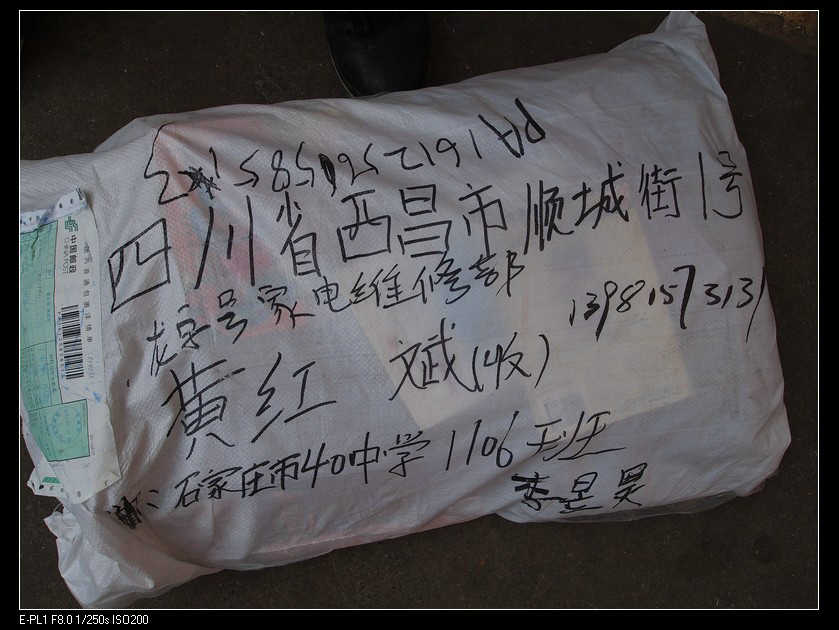 PA16125865853
四川省西昌市顺城街1号
龙字号家电维修部
13981573131
黄红 文斌(收)
石家庄市40中学1106班
李昱昊
中国邮政
CHINA POST
E-PL1 F8.0 1/250s ISO200